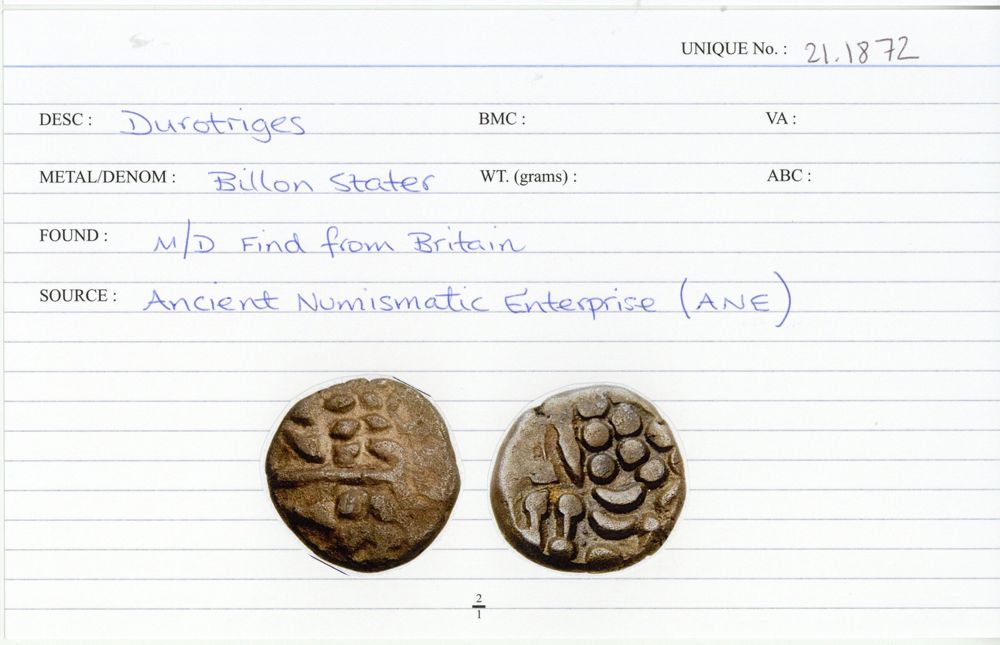 UNIQUE No. : 21.1872
DESC : Durotriges BMC : VA :
METAL/DENOM : Billon Stater WT. (grams) : ABC :
FOUND : M/D Find from Britain
SOURCE : Ancient Numismatic Enterprise (ANE)
2
1